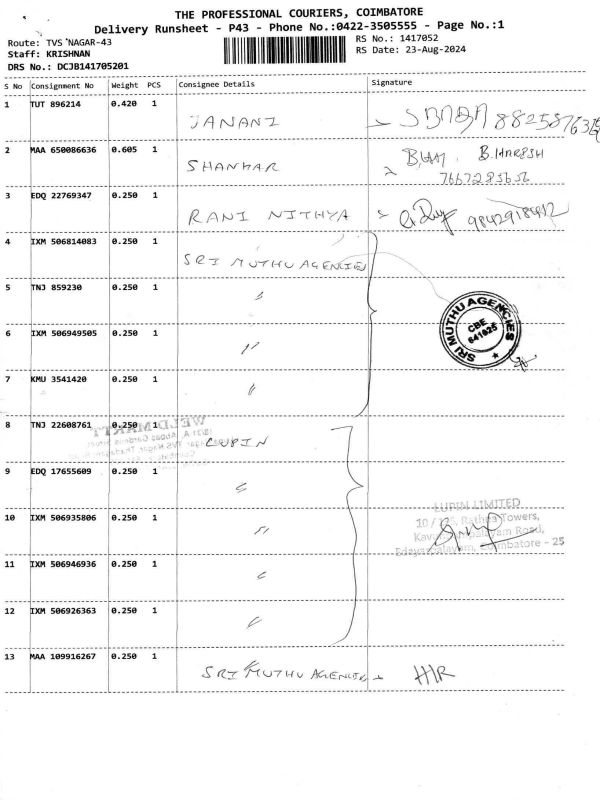 THE PROFESSIONAL COURIERS, COIMBATORE
Delivery Runsheet - P43 - Phone No.:0422-3505555 - Page No.:1
Route: TVS NAGAR-43 RS No.: 1417052
Staff: KRISHNAN RS Date: 23-Aug-2024
DRS No.: DCJB141705201
S No Consignment No Weight PCS Consignee Details Signature
1 TUT 896214 0.420 1 JANANI
2 MAA 650086636 0.605 1 SHANKAR B.HARESH
7667285656
3 EDQ 22769347 0.250 1 RANI NITHYA 9842918412
4 IXM 506814083 0.250 1 SRI MUTHU AGENCIES
5 TNJ 859230 0.250 1 "
6 IXM 506949505 0.250 1 "
7 KMU 3541420 0.250 1 "
SRI MUTHU AGENCIES
CBE
641025
8 TNJ 22608761 0.250 1 LUPIN
WELDMARTT
9 EDQ 17655609 0.250 1 "
10 IXM 506935806 0.250 1 "
LUPIN LIMITED
Towers,
Road,
Coimbatore - 25
11 IXM 506946936 0.250 1 "
12 IXM 506926363 0.250 1 "
13 MAA 109916267 0.250 1 SRI MUTHU AGENCIES